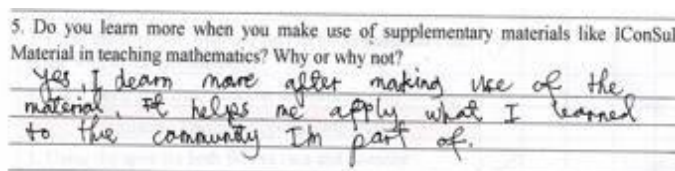 5. Do you learn more when you make use of supplementary materials like IConSuI
Material in teaching mathematics? Why or why not?
yes, I dearn more after making use of the
material, It helps me apply what I learned
to the community Im part of.